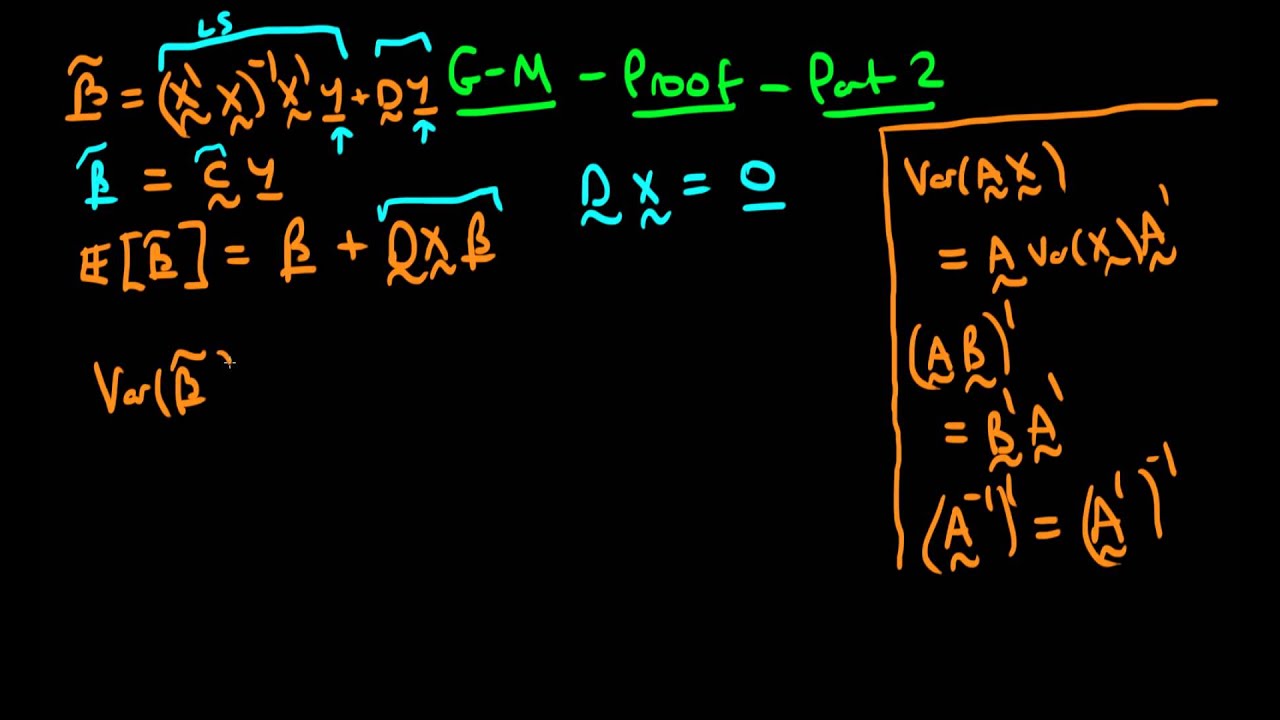 LS
β̃ = (X'X)⁻¹X'Y + DY
G-M - Proof - Part 2
β̃ = CY
DX = 0
E[β̃] = β + DXβ
Var(β̃
Var(AX)
= A Var(X)A'
(AB)'
= B'A'
(A⁻¹)' = (A')⁻¹